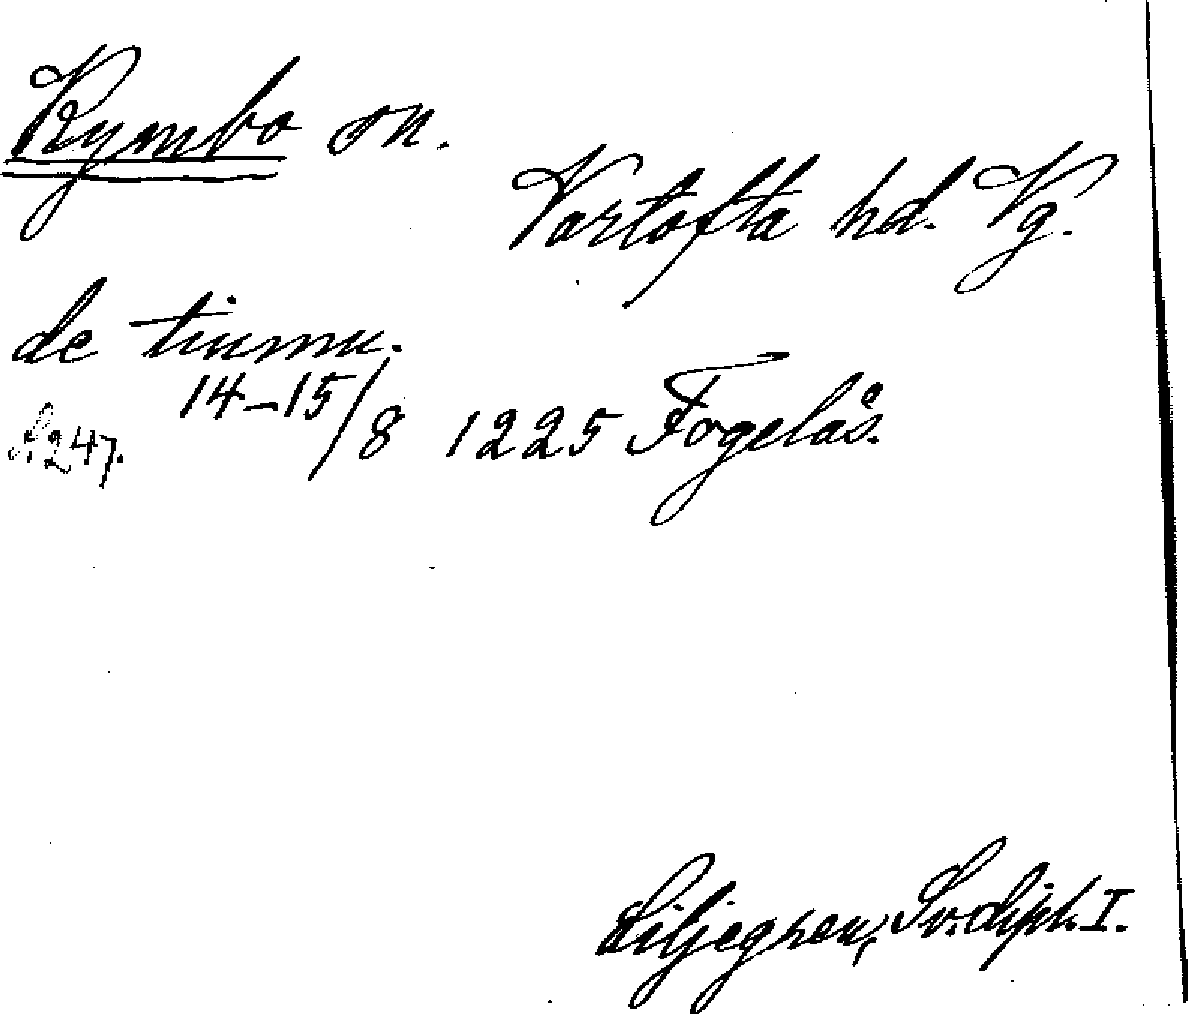 Kymbo sn.
Vartofta hd. Vg.
de tiumu.
14-15/8 1225 Fogelås.
N 247.
Liljegren, Sv. dipl. I.